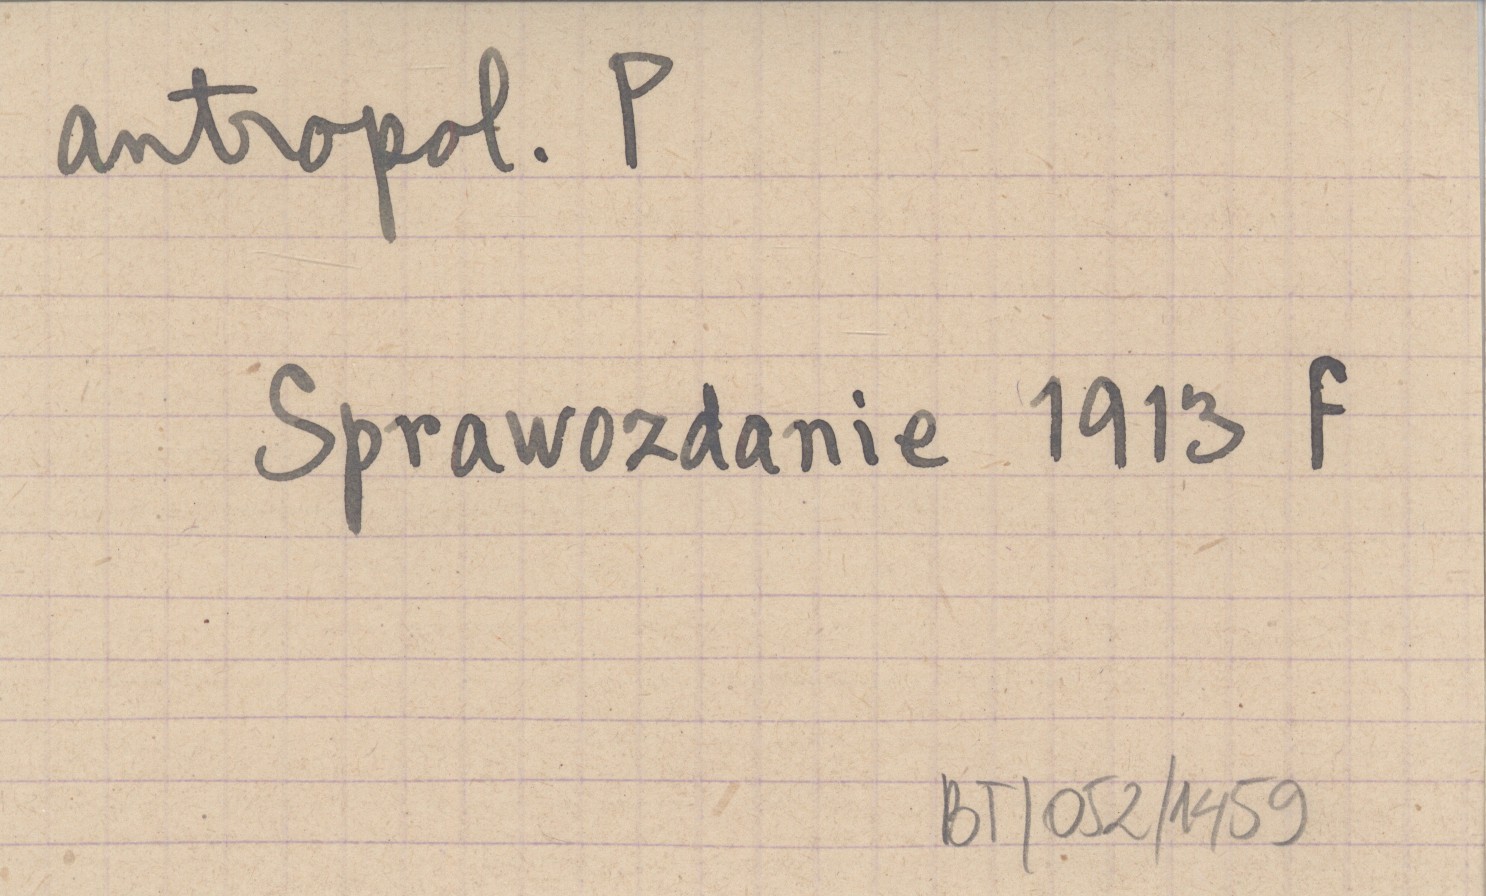 antropol. P
Sprawozdanie 1913 F
BT/052/1459